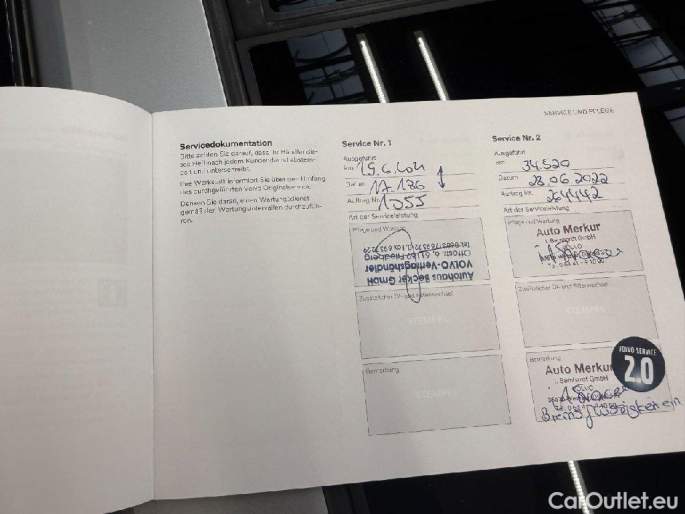 SERVICE UND PFLEGE
Servicedokumentation
Bitte achten Sie darauf, dass Ihr Händler die-
ses Heft nach jedem Kundendienst abstem-
pelt und unterschreibt.
Ihre Werkstatt informiert Sie über den Umfang
des durchgeführten Volvo Originalservice.
Denken Sie daran, einen Wartungsdienst
gemäß der Wartungsintervallen durchzufüh-
ren.
Service Nr. 1
Ausgeführt
km 15.6.2021
Datum 17.186
Auftrag Nr. 1055
Art der Serviceleistung
Pflege und Wartung
Autohaus Becker GmbH
VOLVO-Vertragshändler
Friedberg
Zusätzlicher Öl- und Filterwechsel
STEMPEL
Bemerkung
STEMPEL
Service Nr. 2
Ausgeführt
km 34520
Datum 28.06.2022
Auftrag Nr. 364442
Art der Serviceleistung
Pflege und Wartung
Auto Merkur
Bernhardt GmbH
Zusätzlicher Öl- und Filterwechsel
STEMPEL
VOLVO SERVICE
2.0
Bemerkung
Auto Merkur
Bernhardt GmbH
Bremsflüssigkeit ein
CarOutlet.eu